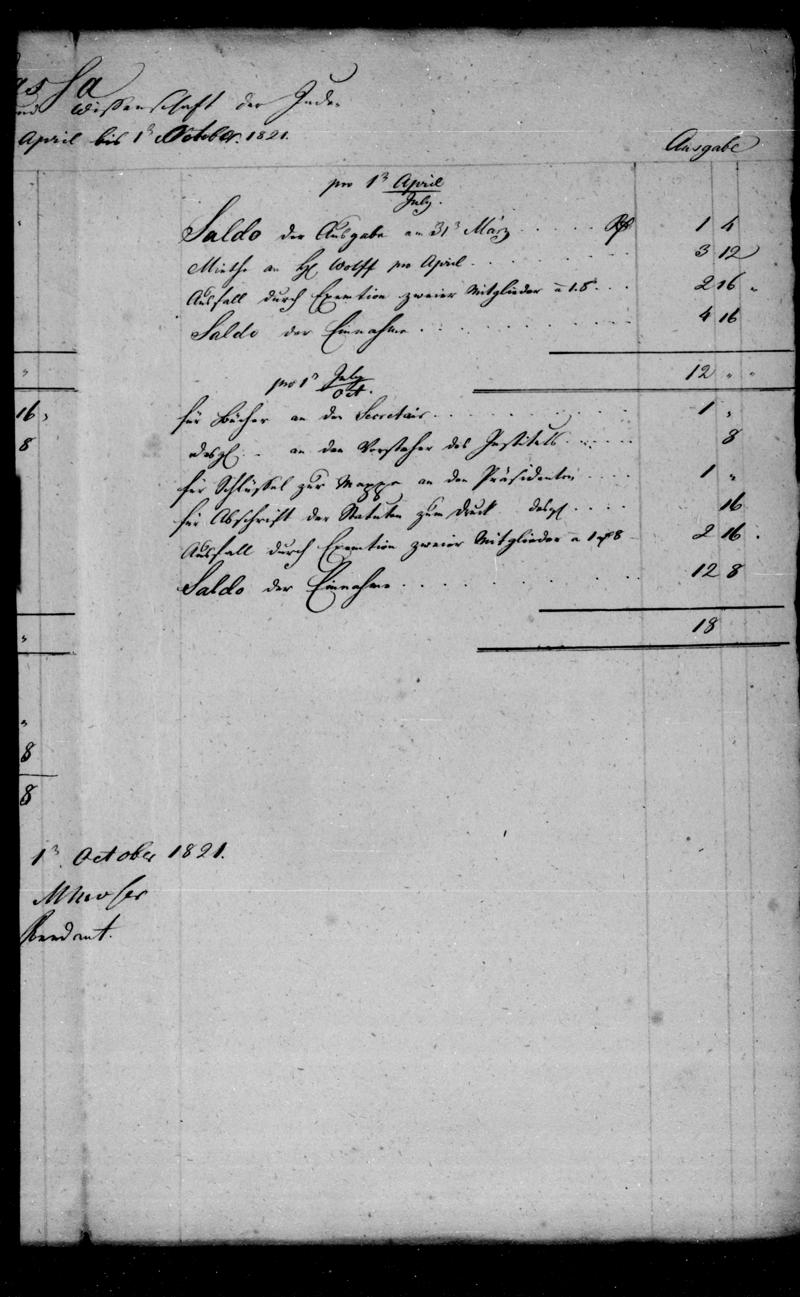 assa
und Wissenschaft der Juden
April bis 1r October. 1821.
Ausgabe
pro 1r April
July.
Saldo der Ausgabe am 31r März . . . . . rℓ 1 4
Miethe an H. Wolff pro April . . . . . . . . 3 12
Ausfall durch Exemtion zweier Mitglieder a 1.8 . . . 2 16 "
Saldo der Einnahme . . . . . . . . 4 16
" 12 " "
pro 1r July
Oct.
16 "
für Bücher an den Secretair . . . . . . . . 1 "
8
desgl. - an den Vorsteher des Instituts . . . . . 8
für Schlüssel zur Mappe an den Präsidenten . . . . 1 "
für Abschrift der Statuten zum Druck desgl. . . . . 16
Ausfall durch Exemtion zweier Mitglieder a 1 rℓ 8 2 16 .
Saldo der Einnahme . . . . . . . . . 12 8
" 18
"
8
8
1r October 1821.
MMoser
Rendant.